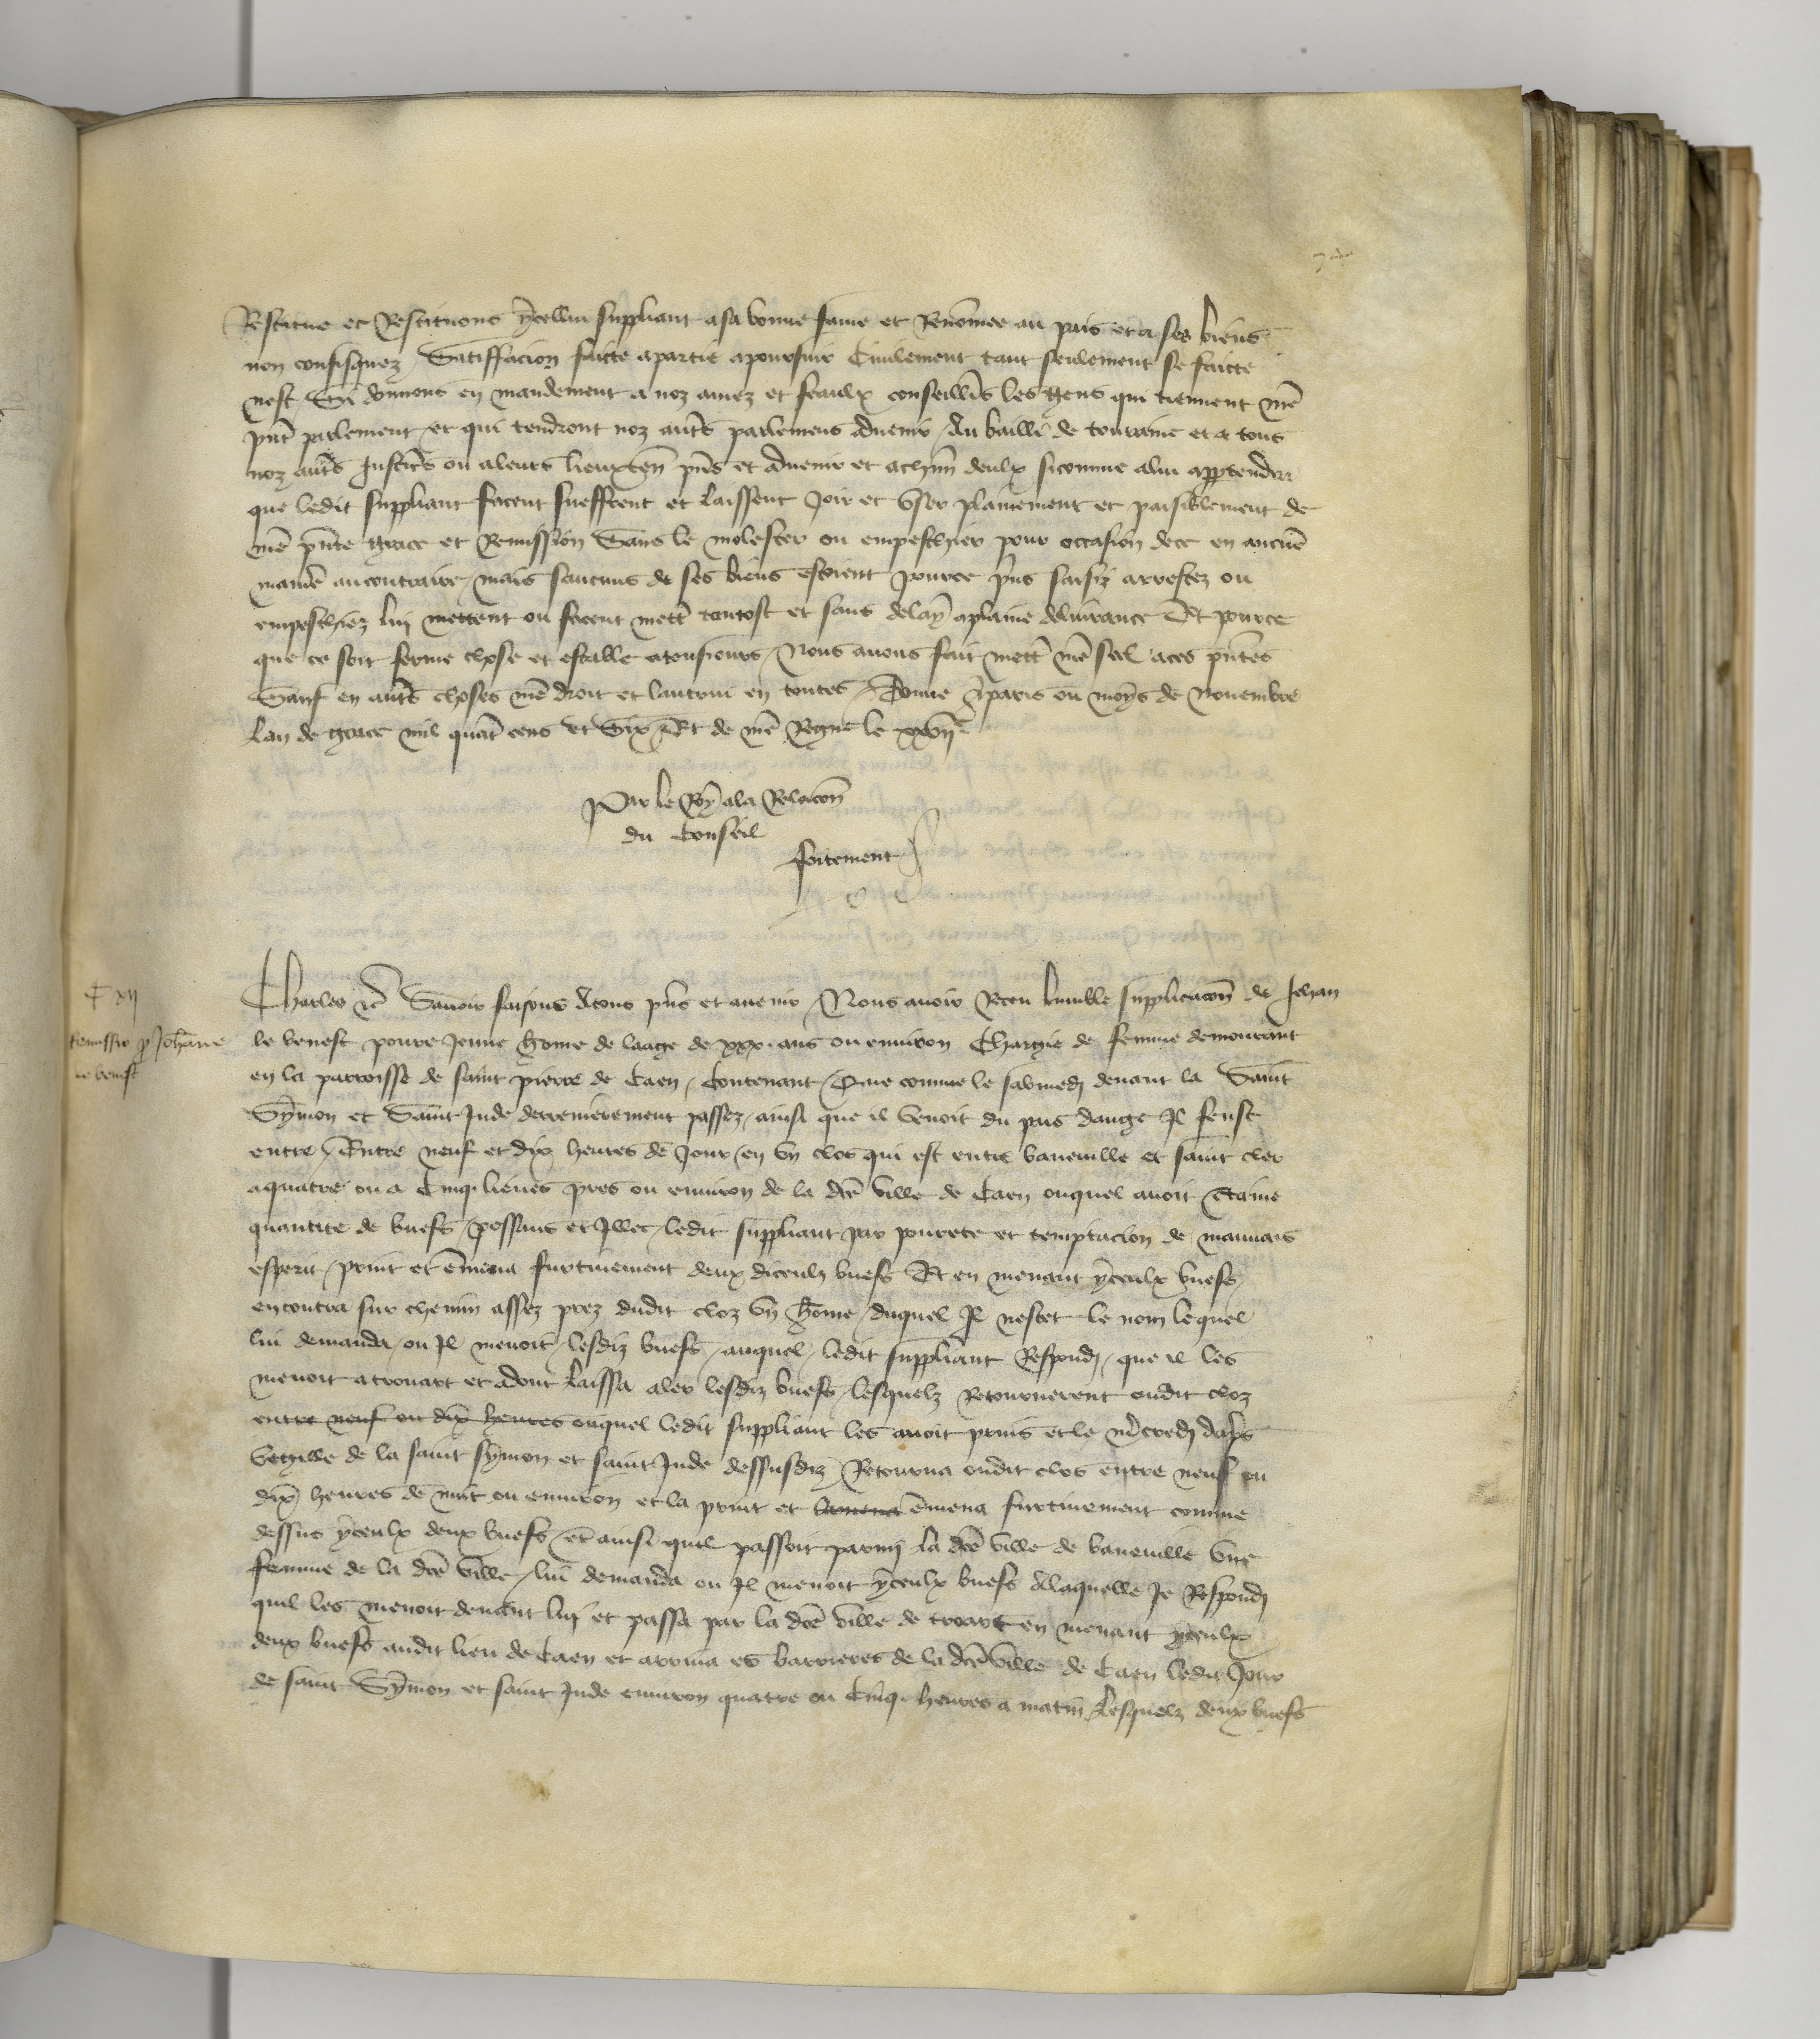 Restitue et Restituons ycellui suppliant a sa bonne fame et Renomee au pais et a ses biens
non confisquez Satiffacion faicte a partie a poursuir Civilement tant seulement se faicte
nest Si donnons en mandement a noz amez et feaulx conseillrs les gens qui tiennent nre
pnt parlement et qui tendront noz autrs parlemens Avenir Au bailli de touraine et a tous
noz autrs Justicrs ou a leurs lieuxten pns et Avenir et a chun deulx si comme a lui apptendra
que ledit suppliant facent sueffrent et laissent Joir et User plainement et paisiblement de
nre pnte grace et Remission Sans le molester ou empeschier pour occasion de ce en aucune
maniere au contraire mais saucuns de ses biens estoient pour ce prins saisiz arrestez ou
empeschiez luy mettent ou facent mettre tantost et sans delay a plaine delivrance Et pour ce
que ce soit ferme chose et estable a tousjours Nous avons fait mettre nre seel a ces pntes
Sauf en autrs choses nre droit et lautrui en toutes Donne a paris ou moys de Novembre
Lan de grace mil quatre cens et Six Et de nre Regne le xxvije
Par le Roy a la Relacon
du Conseil
fortement
C xij
Remissio p Johanne
le benest
Charles etc Savoir faisons A tous pns et avenir Nous avoir Receu lumble supplicacon de Jehan
le benest povre Jeune home de laage de xxx. ans ou environ Chargie de femme demourant
en la parroisse de saint pierre de Caen, Contenant Que comme le sabmedj devant la Saint
Symon et Saint Jude derrenierement passez ainsi que il venoit du pais dauge Il feust
entre Entre neuf et dix heures de Jour en un clos qui est entre baneville et saint cler
a quatre ou a Cinq. lieues pres ou environ de la dte ville de Caen ouquel avoit Ctaine
quantite de buefs pessans et Illec ledit suppliant par povrete et temptacion de mauvais
esperit print et emmena furtivement deux diceulz buefs Et en menant yceulx buefs
encontra sur chemin assez prez dudit cloz un home duquel Il nescet le nom lequel
lui demanda ou Il menoit lesdiz buefs auquel ledit suppliant Respondj que il les
menoit a trouart et adont laissa aler lesdiz buefs lesquelz Retournerent oudit cloz
entre neuf ou dix heures ouquel ledit suppliant les avoit prins et le mercredj daprs
vegille de la saint symon et saint Jude dessusdiz Retourna oudit clos entre neuf ou
dix heures de nuit ou environ et la print et emmena furtivement comme
dessus yceulx deux buefs et ainsi quil passoit parmy la dte ville de baneville une
femme de la dte ville lui demanda ou Il menoit yceulx buefs A laquelle Il Respondj
quil les menoit devant luy et passa par la dte ville de troart en menant yceulx
deux buefs audit lieu de Caen et arriva es barrieres de la dte ville de Caen ledit Jour
de saint Symon et saint Jude environ quatre ou Cinq. heures a matin Lesquelz deux buefs